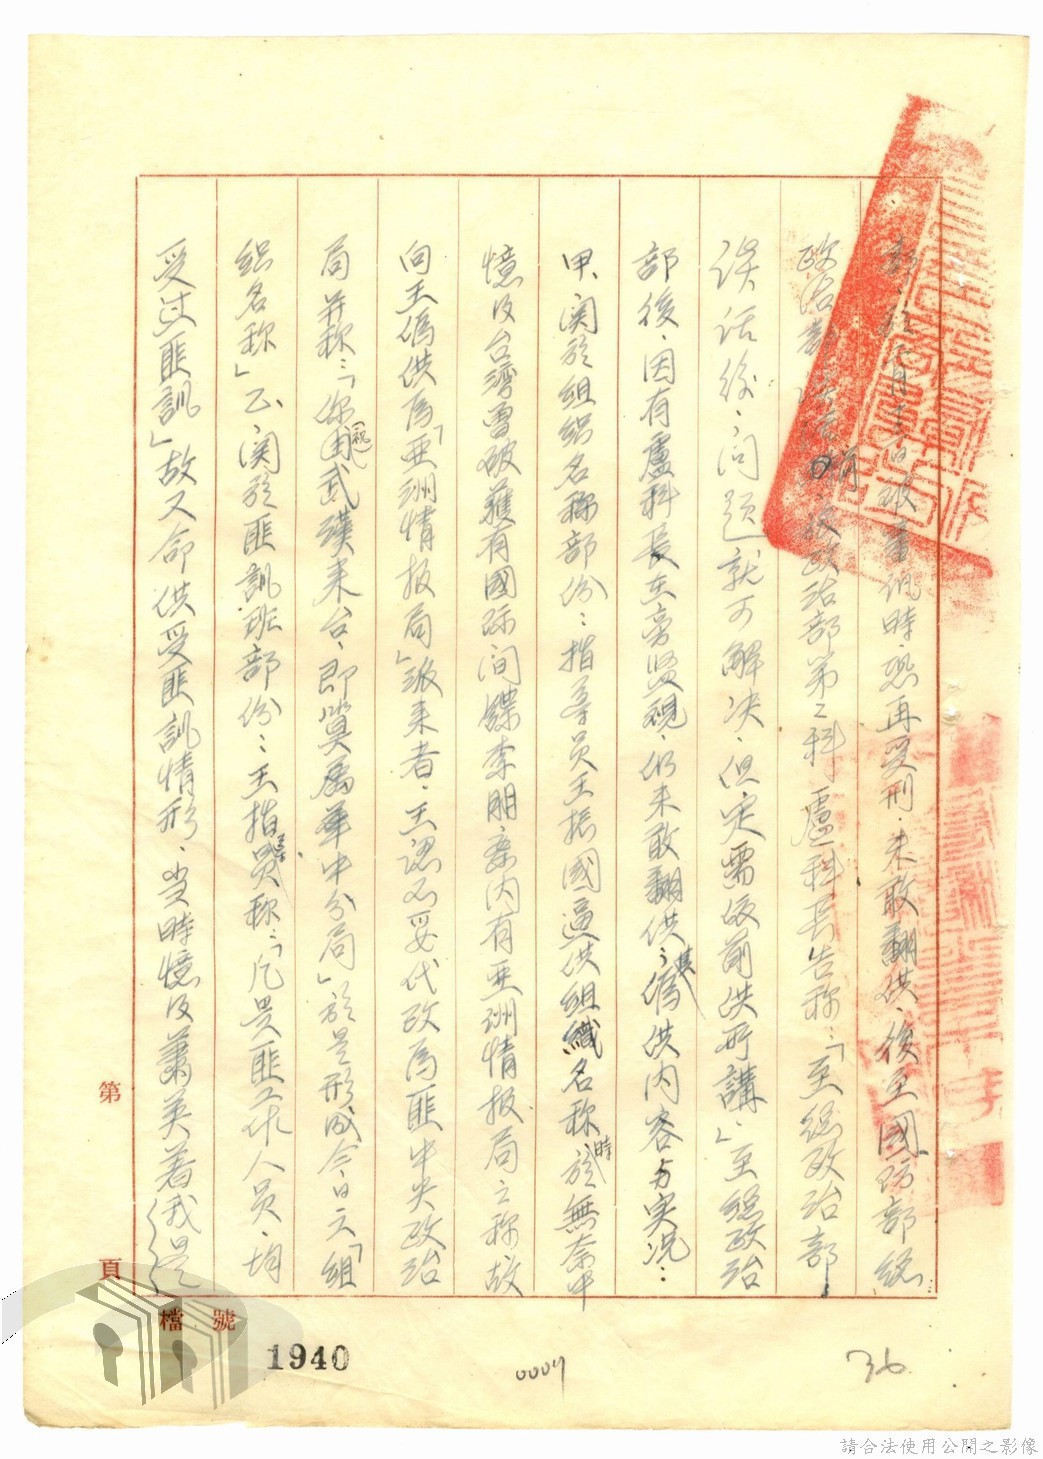 時、恐再受刑、未敢翻供、後至國防部總
政治部第二科盧科長告称：「至總政治部
談話後、問題就可解決、但定需依前供所講」、至總政治
部後、因有盧科長在旁監視、仍未敢翻供、其偽供内容与实况：
甲、関於組織名称部份：指导員王振國逼供組織名称時、於無奈中
憶及台灣曾破獲有國际间諜李朋案内有亚洲情报局之称故
向王偽供為「亚洲情报局」派来者、王認不妥代改為匪中央政治
局并称：「你由武漢来台、即算屬華中分局」於是形成今日之「組
織名称」乙、関於匪訓班部份：王指导員称：「凡是匪工作人員、均
受过匪訓」故又命供受匪訓情形、当時憶及蕭英着我是
第 頁
檔號
1940
0007
36
請合法使用公開之影像